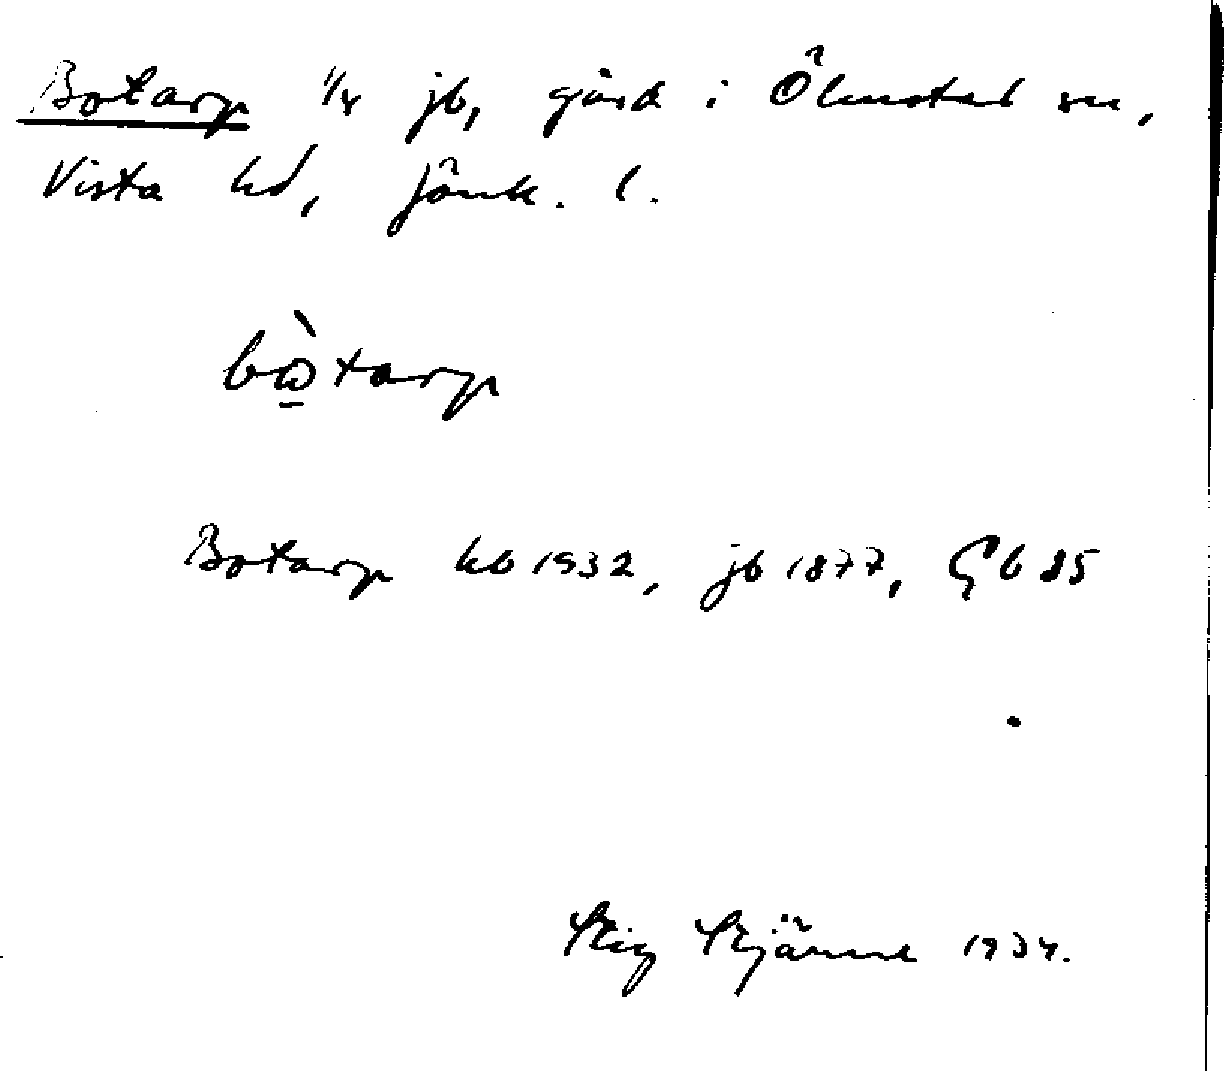 Botarp 1/4 jb, gård i Ölmstad sn,
Vista hd, Jönk. l.
bὼtarp
Botarp kb 1932, jb 1877, Gb 85
Stig Stjärne 1934.